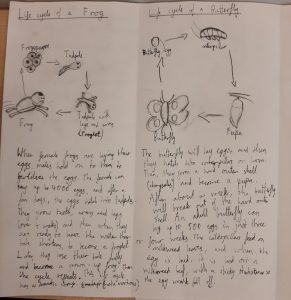 Life cycle of a Frog
Frogspawn
Tadpole
Tadpole with
legs and arms
(Froglet)
Frog
When female frogs are laying their
eggs males hold on to them to
fertilize the eggs. The female can
lay up to 4000 eggs, and after a
few days, the eggs hatch into tadpoles.
They grow teeth, arms and legs
and then when they
are ready to leave the water their
tail shortens, to become a froglet
they lose their tails fully
and become a grown up frog. Then
the cycle repeats. This life cycle
has
Life cycle of a Butterfly
Butterfly egg
caterpillar
Pupa
Butterfly
The butterfly will lay eggs and then
they hatch into caterpillars or larva.
Then, they form a hard outer shell
(chrysalis) and become a pupa.
After about a week, the butterfly
will break out of the hard outer
shell. An adult butterfly can
lay up to 500 eggs in just three
or four weeks. The caterpillars feed on
milkweed leaves, and when the
egg is laid, it is laid on a
milkweed leaf, with a sticky substance so
the egg won't fall off.